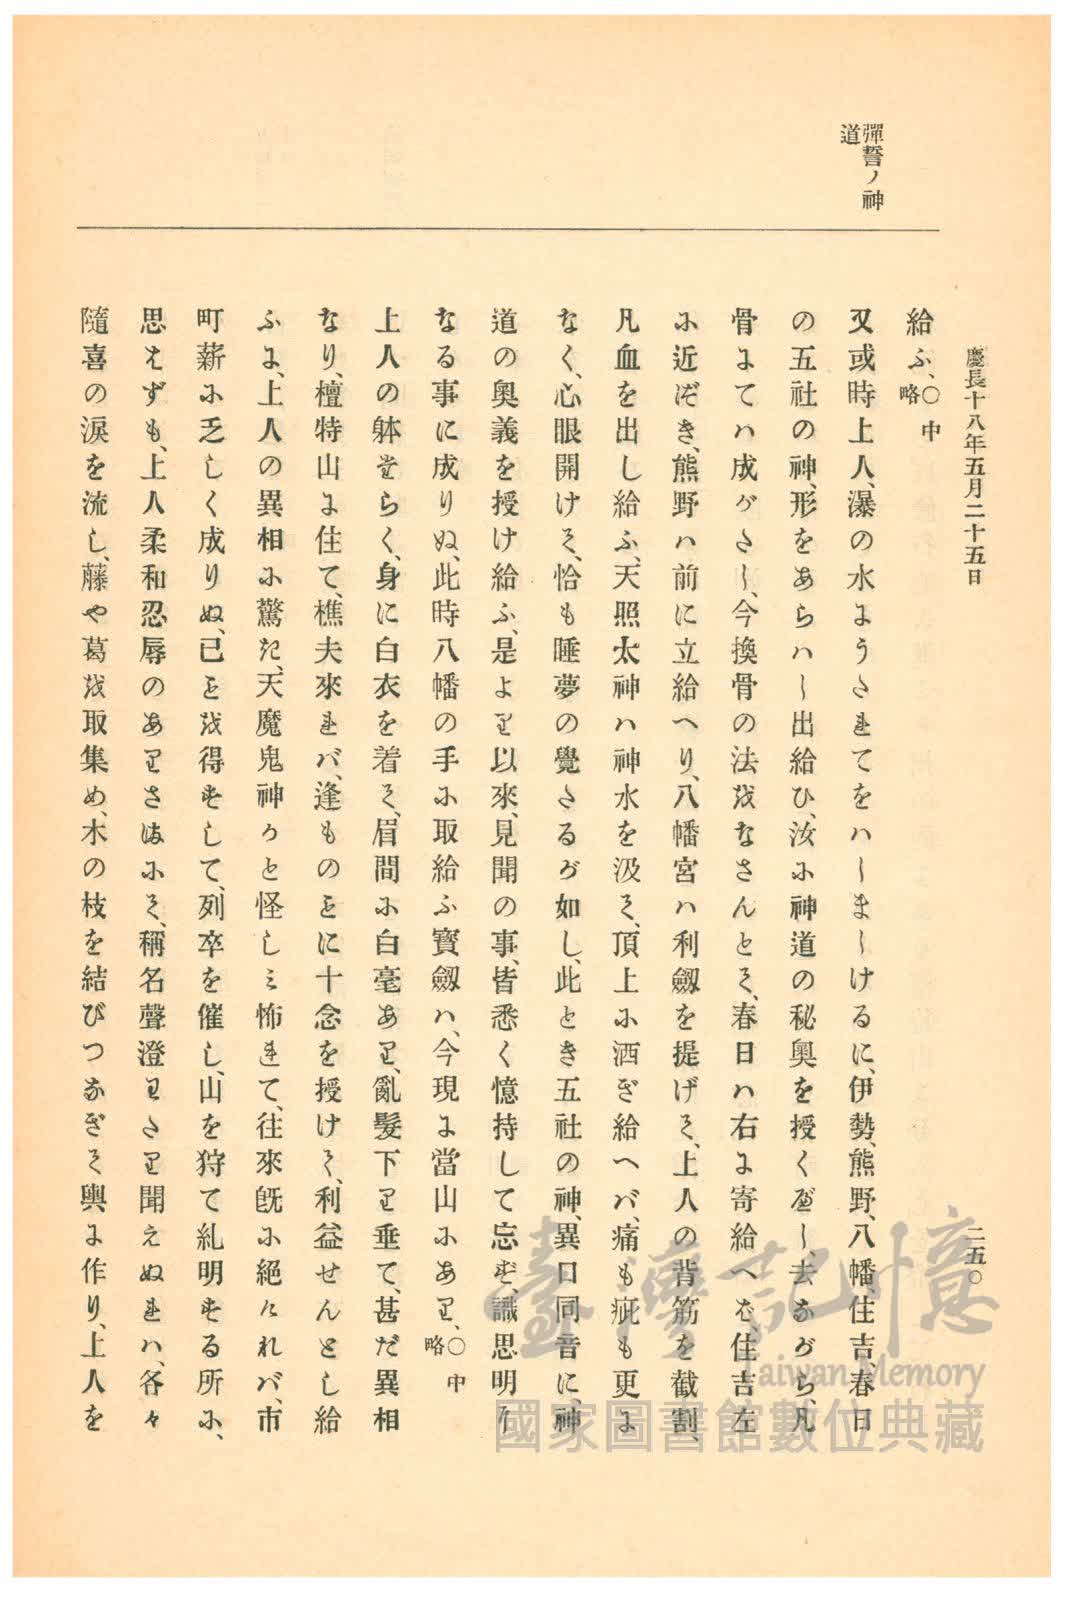 慶長十八年五月二十五日
二五〇
彈誓ノ神
道
給ふ、〇中略
又或時上人、瀑の水にうたれてをハしましけるに、伊勢、熊野、八幡住吉、春日
の五社の神、形をあらハし出給ひ、汝に神道の秘奥を授くべし、去ながら、凡
骨にてハ成がたし、今換骨の法をなさんとて、春日ハ右に寄給へば、住吉ハ左
に近づき、熊野ハ前に立給へり、八幡宮ハ利劔を提げて、上人の背筋を截割、
凡血を出し給ふ、天照太神ハ神水を汲て、頂上に洒ぎ給へバ、痛も疵も更に
なく、心眼開けて、恰も睡夢の覺たるが如し、此とき五社の神、異口同音に、神
道の奥義を授け給ふ、是より以來、見聞の事、皆悉く憶持して忘ず、識思明り
なる事に成りぬ、此時八幡の手に取給ふ寶劔ハ、今現に當山にあり、〇中略
上人の躰たらく、身に白衣を着て、眉間に白毫あり、亂髮下り垂て、甚だ異相
なり、檀特山に住て、樵夫來れバ、逢ものごとに十念を授けて、利益せんとし給
ふに、上人の異相に驚き、天魔鬼神かと怪しミ怖れて、往來既に絶けれバ、市
町薪に乏しく成りぬ、已ことを得ずして、列卒を催し、山を狩て糺明する所に、
思はずも、上人柔和忍辱のありさまにて、稱名聲澄わたり聞えぬれハ、各々
隨喜の涙を流し、藤や葛を取集め、木の枝を結びつなぎて輿に作り、上人を
臺灣記憶
Taiwan Memory
國家圖書館數位典藏